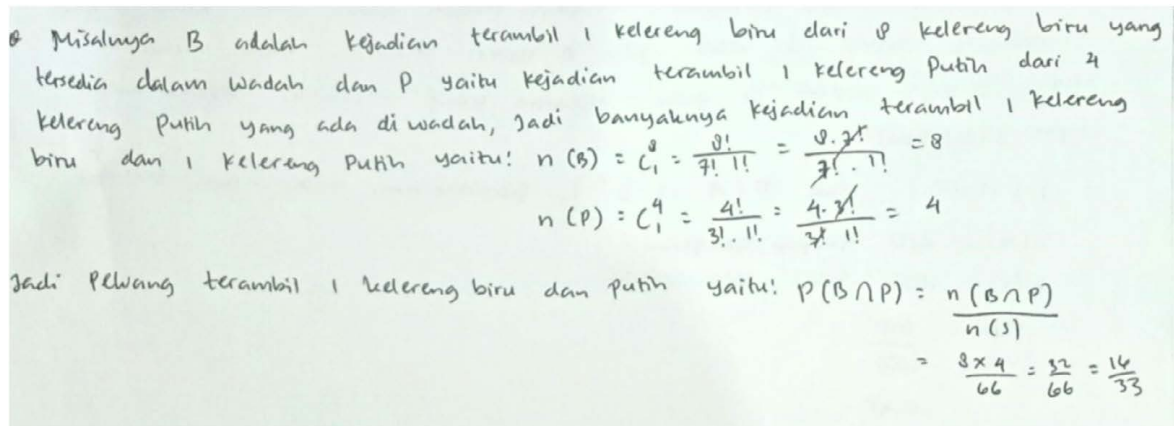 Misalnya B adalah kejadian terambil 1 kelereng biru dari 8 kelereng biru yang
tersedia dalam wadah dan P yaitu kejadian terambil 1 kelereng Putih dari 4
kelereng Putih yang ada di wadah, Jadi banyaknya kejadian terambil 1 kelereng
biru dan 1 kelereng Putih yaitu: n (B) = C₁⁸ = 8!/7! 1! = 8.7!/7!.1! = 8
n (P) = C₁⁴ = 4!/3!.1! = 4.3!/3! 1! = 4
Jadi Peluang terambil 1 kelereng biru dan putih yaitu: P(B∩P) = n (B∩P)/n (S)
= 8×4/66 = 32/66 = 16/33